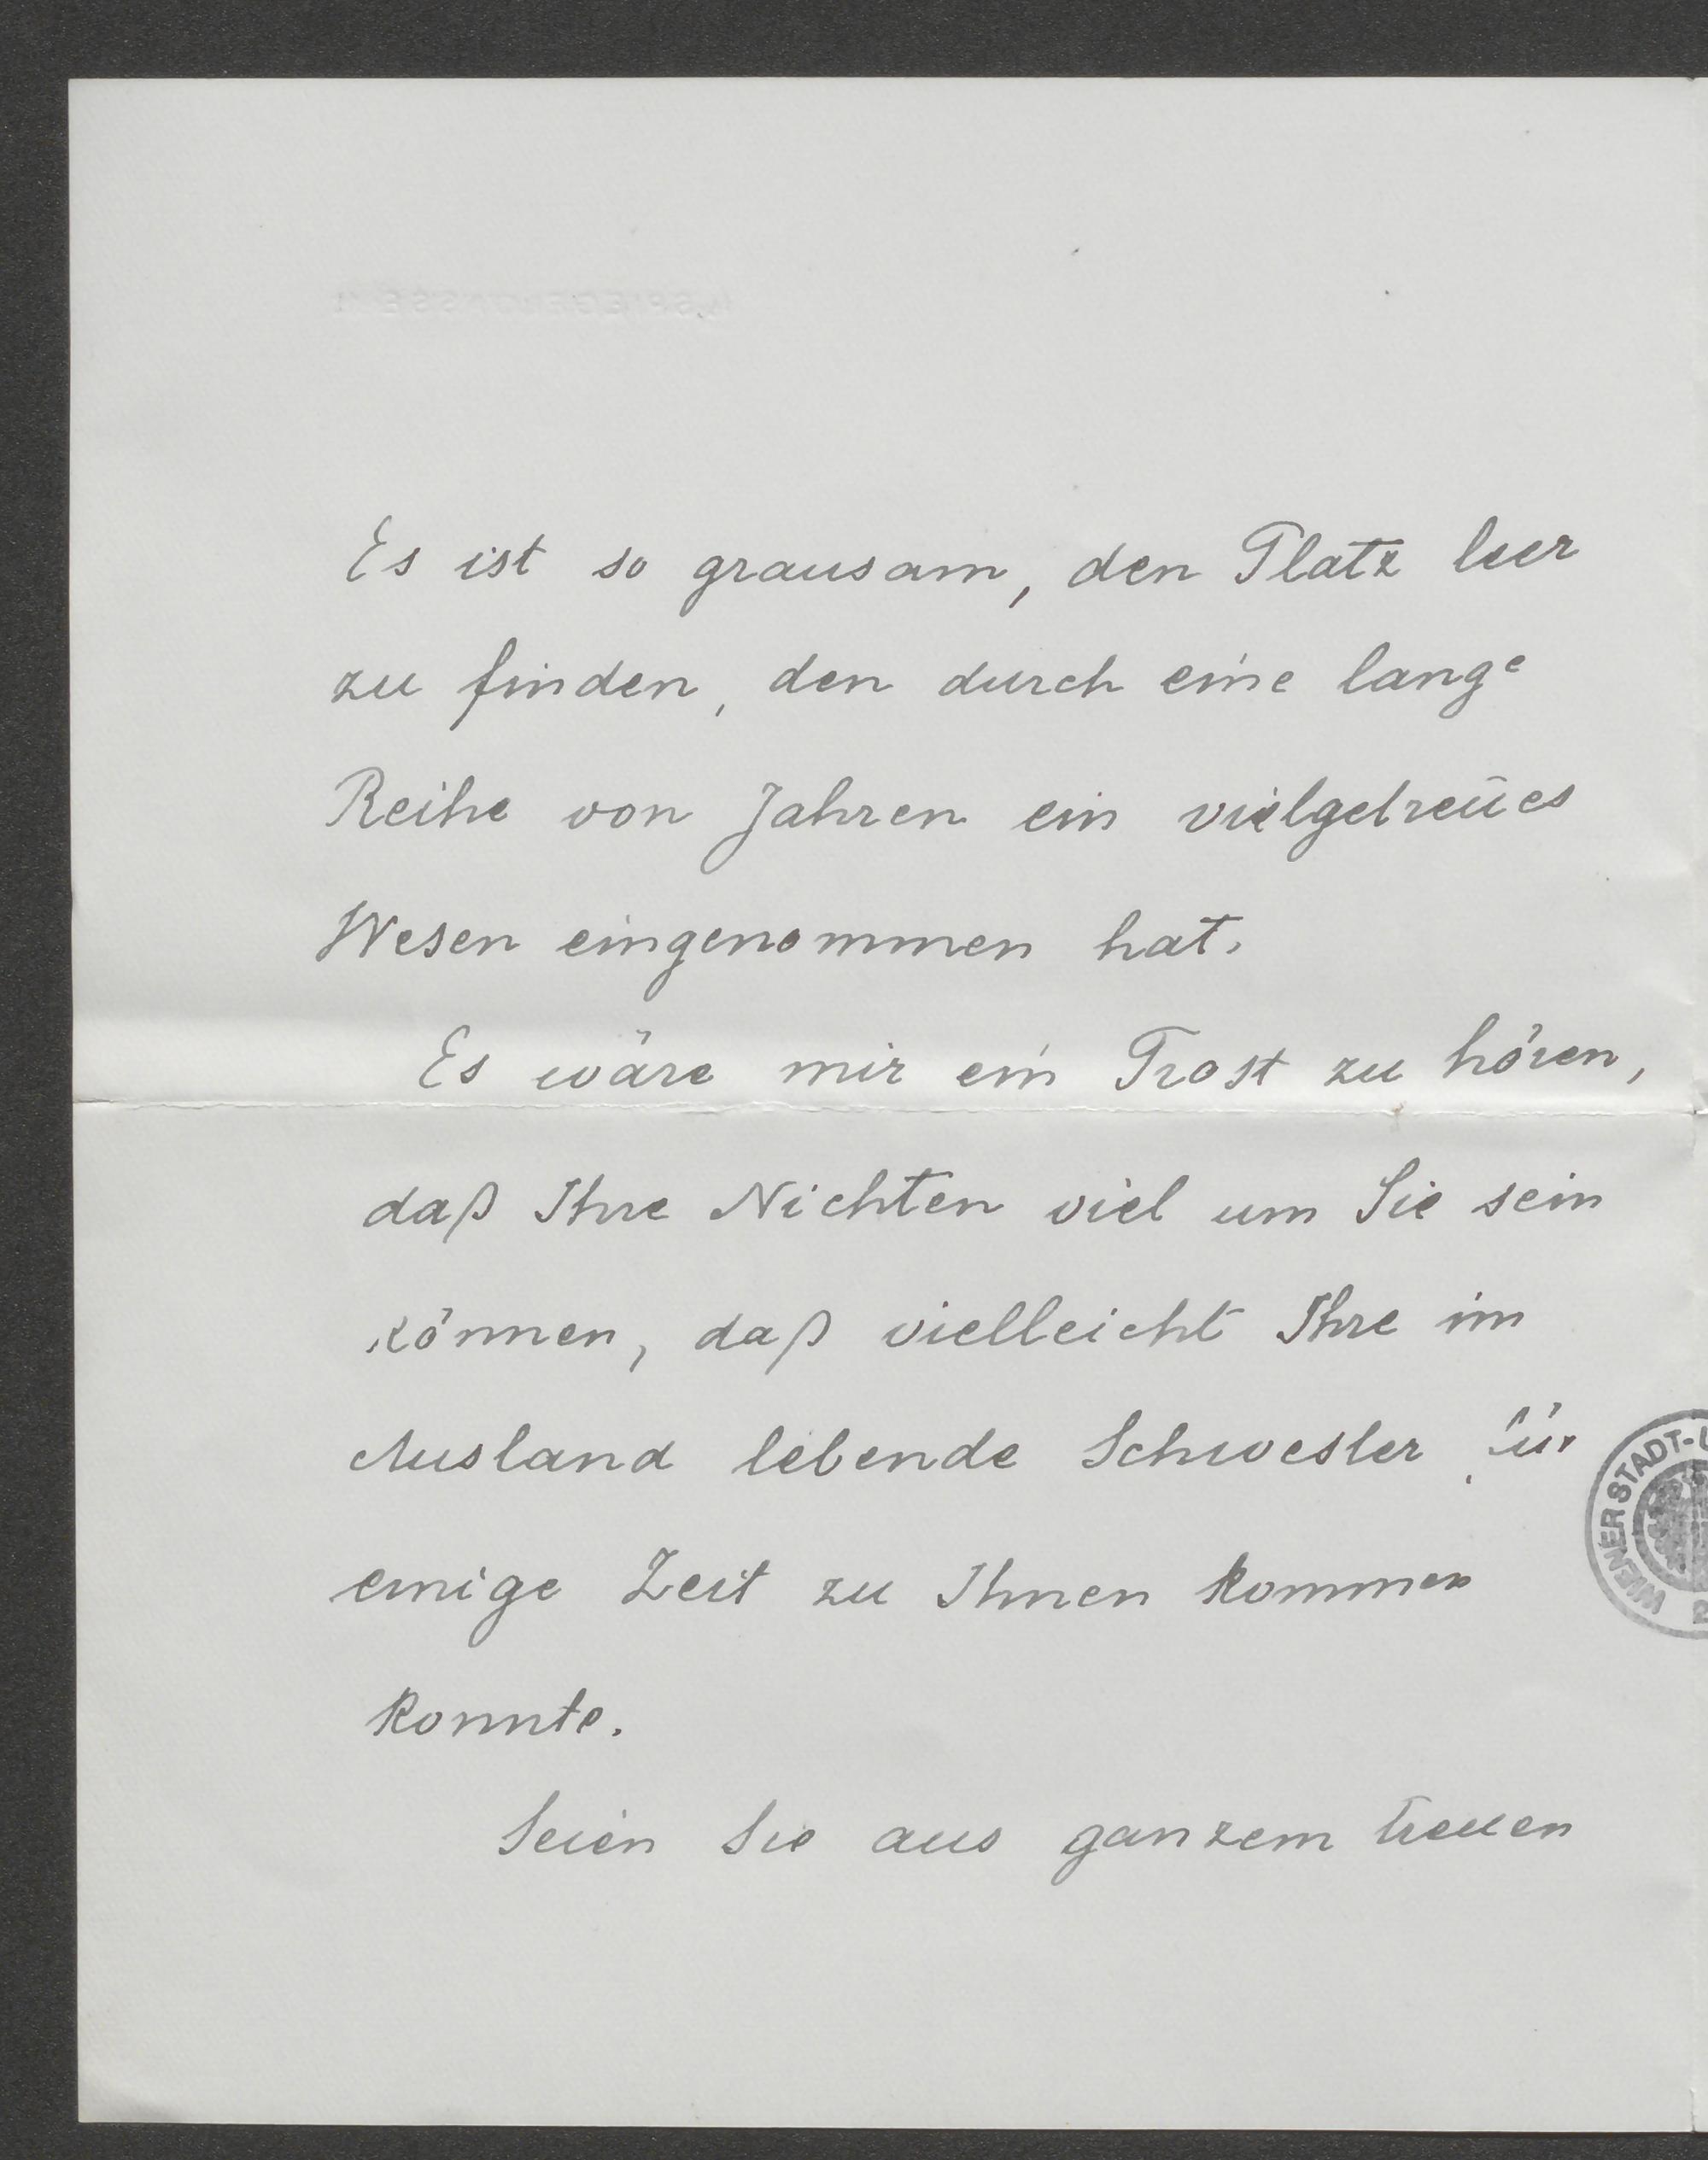 Es ist so grausam, den Platz leer
zu finden, den durch eine lange
Reihe von Jahren ein vielgetreues
Wesen eingenommen hat.
Es wäre mir ein Trost zu hören,
daß Ihre Nichten viel um Sie sein
können, daß vielleicht Ihre im
Ausland lebende Schwester für
einige Zeit zu Ihnen kommen
konnte.
Seien Sie aus ganzem treuen
WIENER STADT-